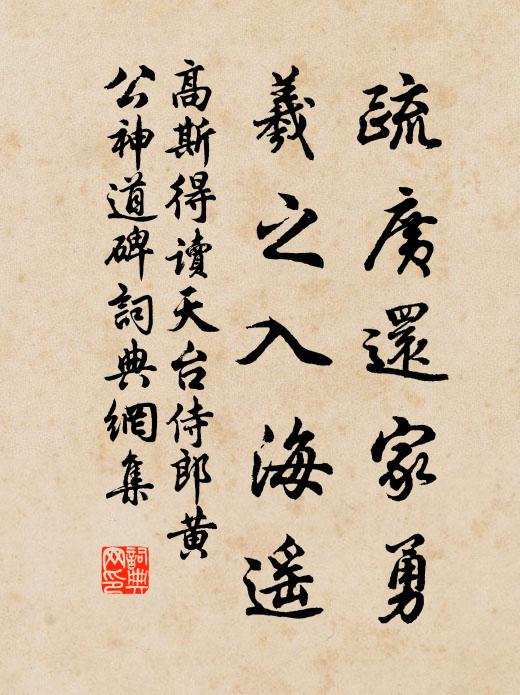 疏廣還家勇
羲之入海遥
高斯得讀天台侍郎黄
公神道碑詞典網集
詞典
网印